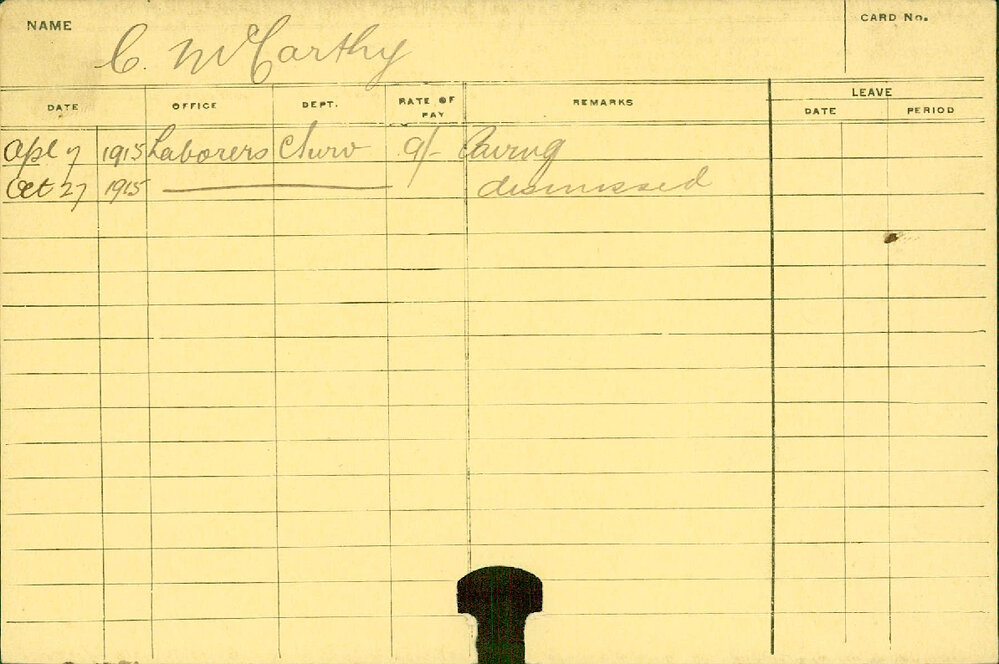 NAME C. McCarthy CARD No.
DATE OFFICE DEPT. RATE OF PAY REMARKS LEAVE
DATE PERIOD
Apl 7 1915 Laborers 9/- Paving
Oct 27 1915 dismissed